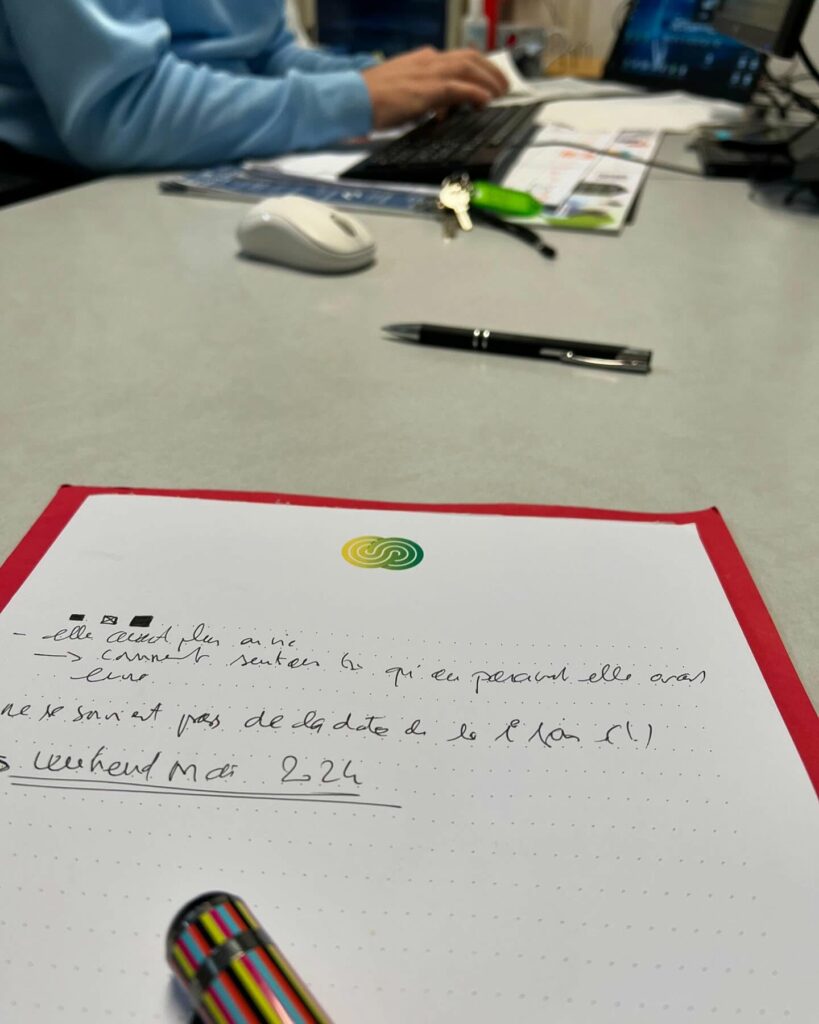 - elle avait plus envie
→ comment sentiez qu'en parlant elle avait
envie
ne se souvient pas de la date de la 1° fois (!)
weekend Mai 2024